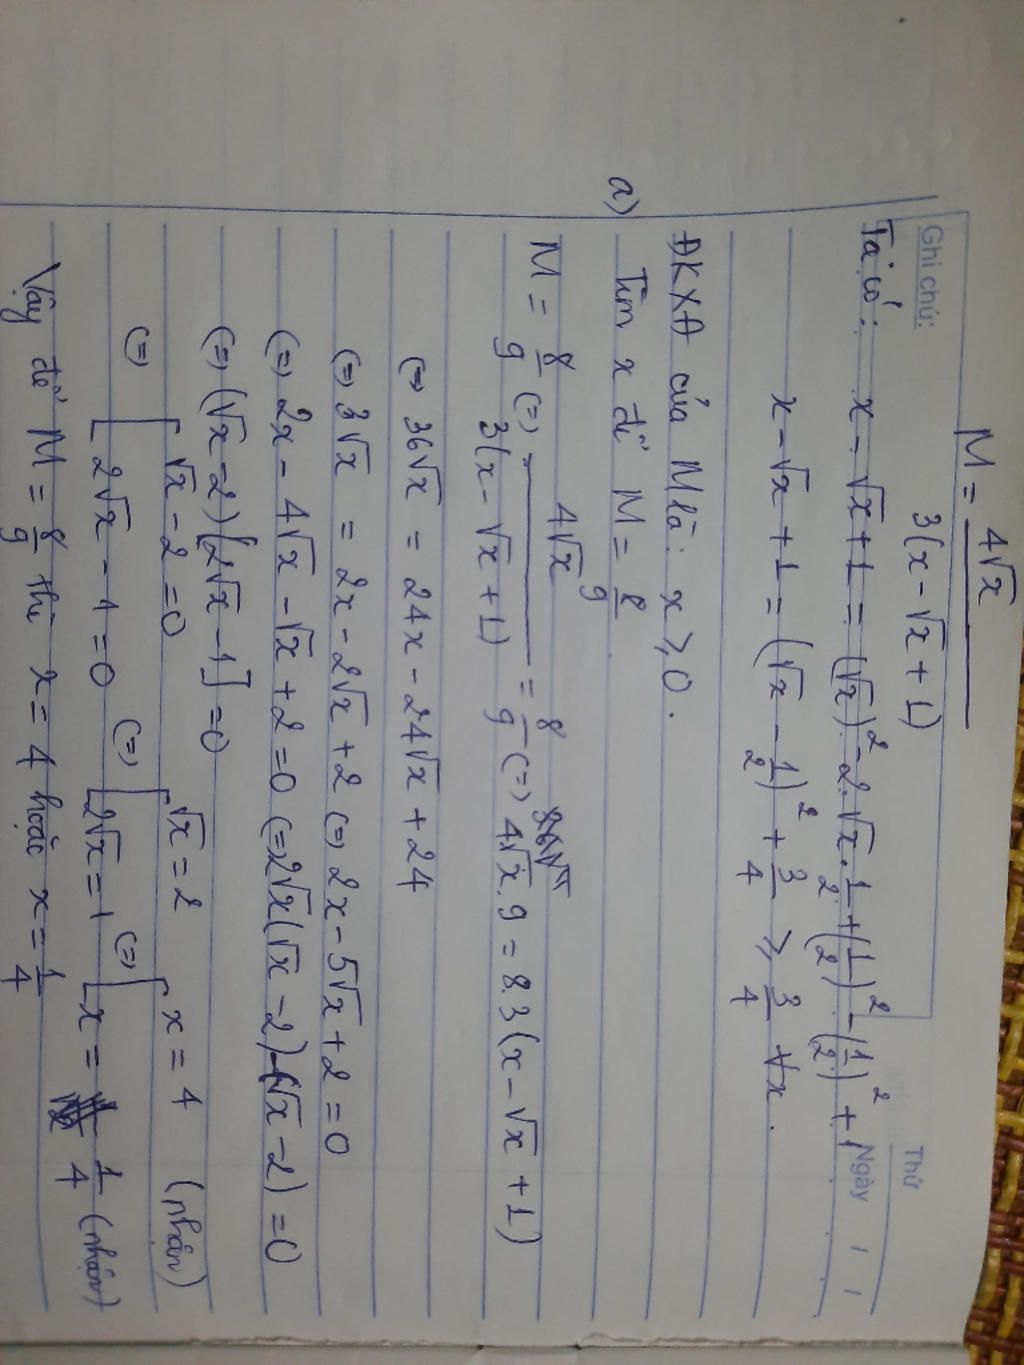 M = 4√x / 3(x - √x + 1)
Ghi chú:
Thứ
Ngày / /
Ta có: x - √x + 1 = (√x)² - 2.√x.1/2 + (1/2)² - (1/2)² + 1
x - √x + 1 = (√x - 1/2)² + 3/4 ⩾ 3/4 ∀x.
ĐKXĐ của M là: x ⩾ 0.
a) Tìm x để M = 8/9
M = 8/9 (=) 4√x / 3(x - √x + 1) = 8/9 (=) 4√x.9 = 8.3(x - √x + 1)
(=) 36√x = 24x - 24√x + 24
(=) 3√x = 2x - 2√x + 2 (=) 2x - 5√x + 2 = 0
(=) 2x - 4√x - √x + 2 = 0 (=) 2√x(√x - 2) - (√x - 2) = 0
(=) (√x - 2)[2√x - 1] = 0
(=) [ √x - 2 = 0 (=) [ √x = 2 (=) [ x = 4 (nhận)
2√x - 1 = 0 2√x = 1 x = 1/4 (nhận)
Vậy để M = 8/9 thì x = 4 hoặc x = 1/4